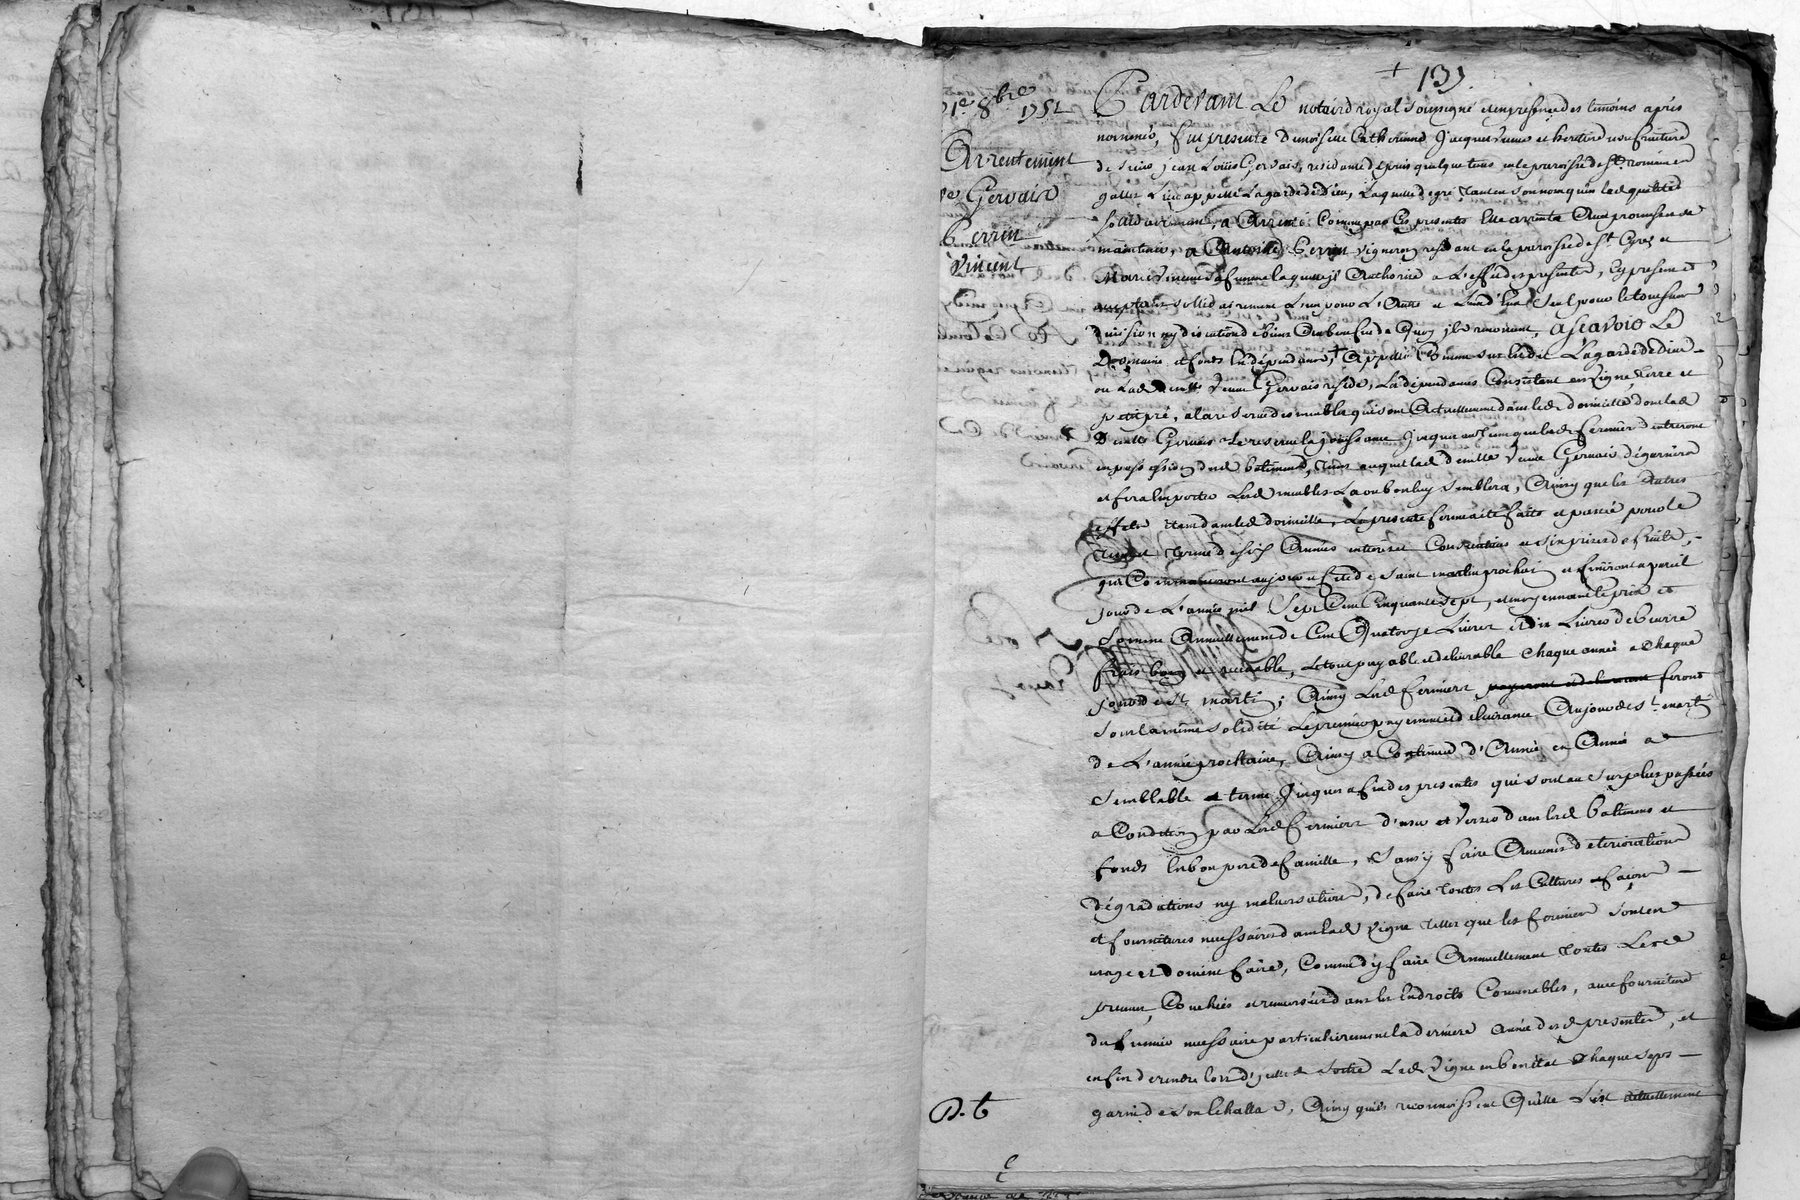 + 137
1e 8bre 1751
Arrentement
ve Gervais
Perrin
Vincent
D. t
Pardevant Le notaire royal soussigné et en presence des temoins après
nommés, fut presente Demoiselle Catherine Jacquet veuve et heritiere usufruitiere
de sieur jean Louis Gervais, residante depuis quelque tems en la paroisse de st romain en
gallet Lieu appellé Lagarde de dieu, Laquelle de gré tant en son nom qu'en lad. qualité
a Arrenté comme par Ces presentes Elle arrente avec promesse de
maintenir, a Antoine Perrin vigneron residant en la paroisse de st Cyr et
Marie Vincent sa femme laquelle jl Authorise a L'effet des presentes, Cy presents et
acceptants sollidairement L'un pour L'autre et L'un d'Eux seul pour le tout sans
division ny discution de biens Au benefice de Quoy jls renoncent, ascavoir Le
Domaine et fonds En dépendants, + appellé Comme sus est dit Lagarde de Dieu
ou Lad. demlle Veuve Gervais reside, La dépendance Consistant en Vigne, terre et
petit pré, a la reserve des meubles qui sont Actuellement dans led. domicille dont lad.
Demlle Gervais se reserve la jouissance jusques au tems que lesd. fermiers entreront
en possession dud. batiment, tems auquel lad. demlle Veuve Gervais dégarnira
et fera Emporter Lesd. meubles La ou bon luy semblera, Ainsy que les Autres
effets etant dans led. domicille, La presente ferme a été faite et passée pour le
tems et terme de six Années entieres Consecutives et six prises de fruits,
qui Commenceront au jour et fete de Saint martin prochain et finiront a pareil
jour de L'année mil Sept Cent Cinquante sept, et moyennant le prix et
somme Annuellement de Cent Quatorze Livres et dix Livres de beurre
frais bon et recevable, Le tout payable et delivrable Chaque année a Chaque
jour de st martin; Ainsy Lesd. fermiers payeront et delivreront feront
sous la même solidité Le premier payement et delivrance Au jour de st martin
de L'année prochaine, Ainsy a Continuer d'Année en Année a
semblable terme jusques a fin des presentes qui sont au surplus passées
a Condition par Lesd. fermiers d'user et Verser dans lesd. batiments et
fonds En bon pere de famille, sans y faire Aucunes deteriorations
dégradations ny malversations, de faire toutes Les Cultures et façons
et fournitures necessaires dans lad. Vigne telles que les fermiers sont en
usage et doivent faire, Comme d'y faire Annuellement toutes Lesd.
preuves Couchées et renversées dans les Endroits Convenables, avec fourniture
du fumier necessaire particulierement la derniere Année desd. presentes, et
enfin de rendre lors d'jcelle sortie Lad. Vigne en bon état Chaque seps
garni de son Echallas, Ainsy qu'ils reconnoissent Qu'elle L'est actuellement